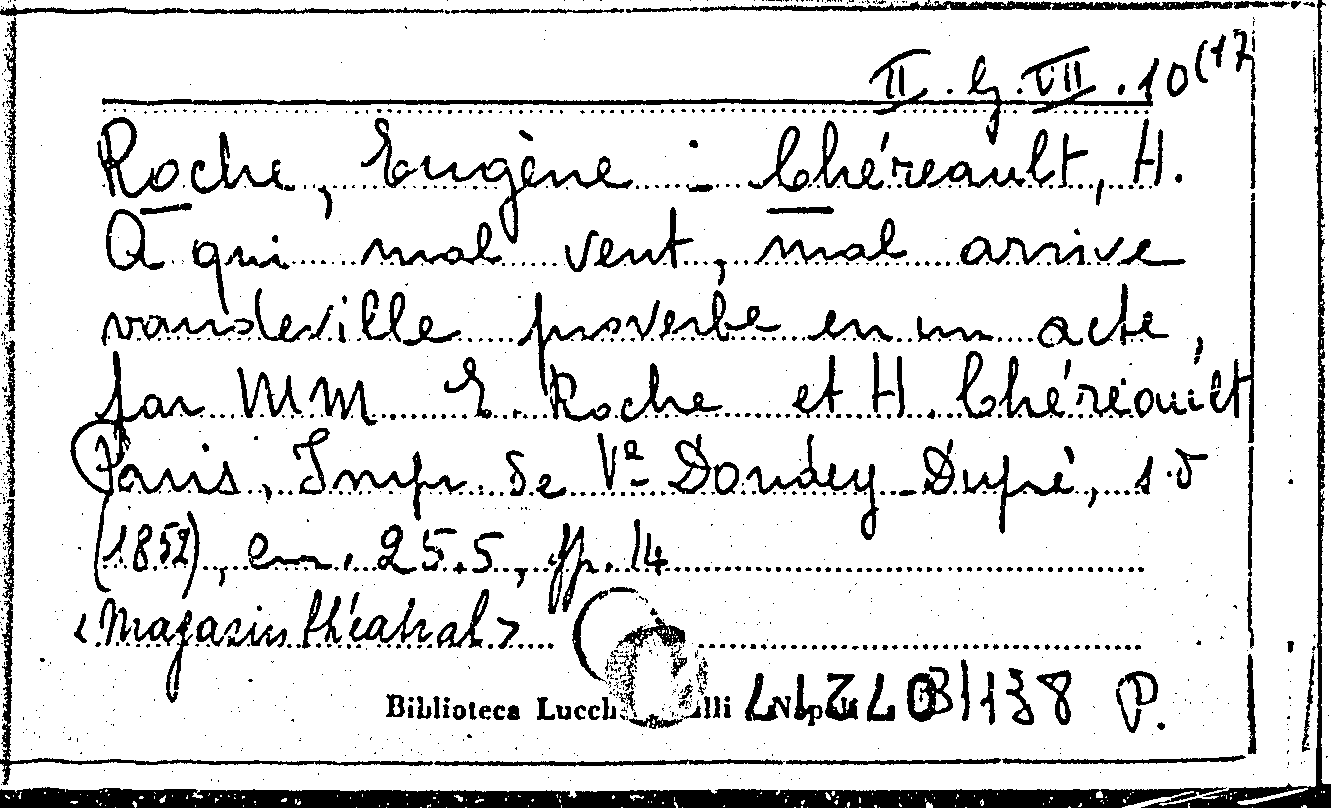 II. G. VII. 10(17
Roche, Eugène - Chéreault, H.
A qui mal veut, mal arrive
vaudeville proverbe en un acte,
par MM E. Roche et H. Chéréault
Paris, Impr. de Ve Dondey-Dupré, s.d
(1852), cm. 25.5, pp. 14
<Magasin théatral>
Biblioteca 138 P.